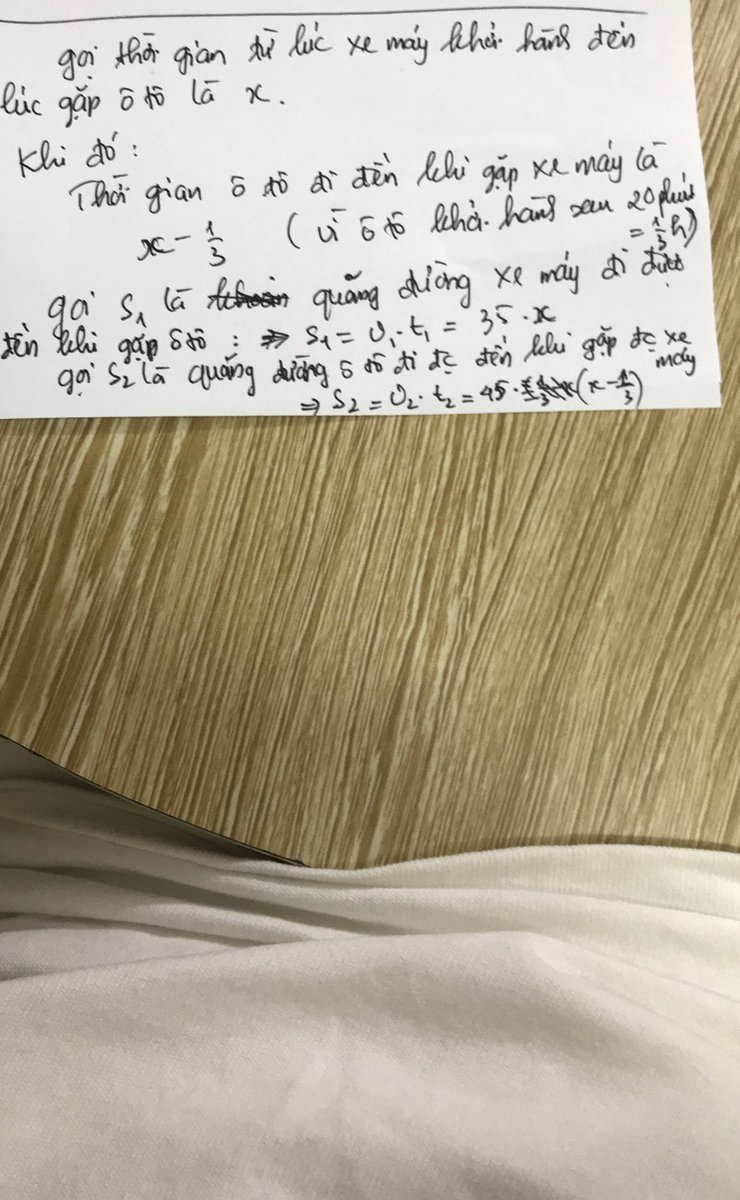 gọi thời gian từ lúc xe máy khởi hành đến
lúc gặp ô tô là x.
Khi đó:
Thời gian ô tô đi đến khi gặp xe máy là
x - 1/3 (vì ô tô khởi hành sau 20 phút
= 1/3 h)
gọi S₁ là quãng đường xe máy đi được
đến khi gặp ôtô : => S₁ = v₁. t₁ = 35. x
gọi S₂ là quãng đường ô tô đi đc đến khi gặp đc xe
máy
=> S₂ = v₂. t₂ = 45. (x - 1/3)